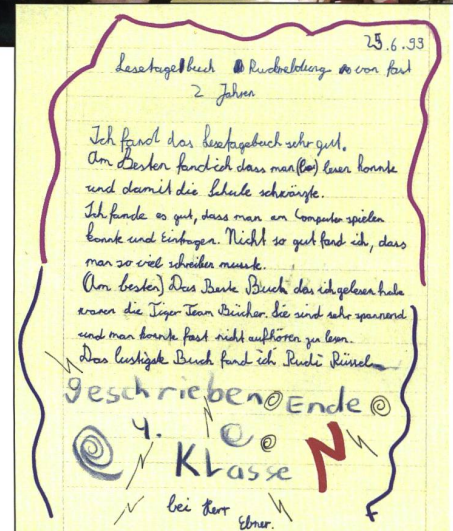 25.6.93
Lesetagebuch Rückmeldung von fast
2 Jahren
Ich fand das Lesetagebuch sehr gut.
Am Besten fand ich dass man lesen konnte
und damit die Schule schwänzte.
Ich fande es gut, dass man am Computer spielen
konnte und Eintragen. Nicht so gut fand ich, dass
man so viel schreiben musste.
(Am besten) Das Beste Buch das ich gelesen habe
waren die Tiger Team Bücher. Sie sind sehr spannend
und man konnte fast nicht aufhören zu lesen.
Das lustigste Buch fand ich Rudi Rüssel
geschrieben Ende
4.
Klasse
bei Herr
Ebner.